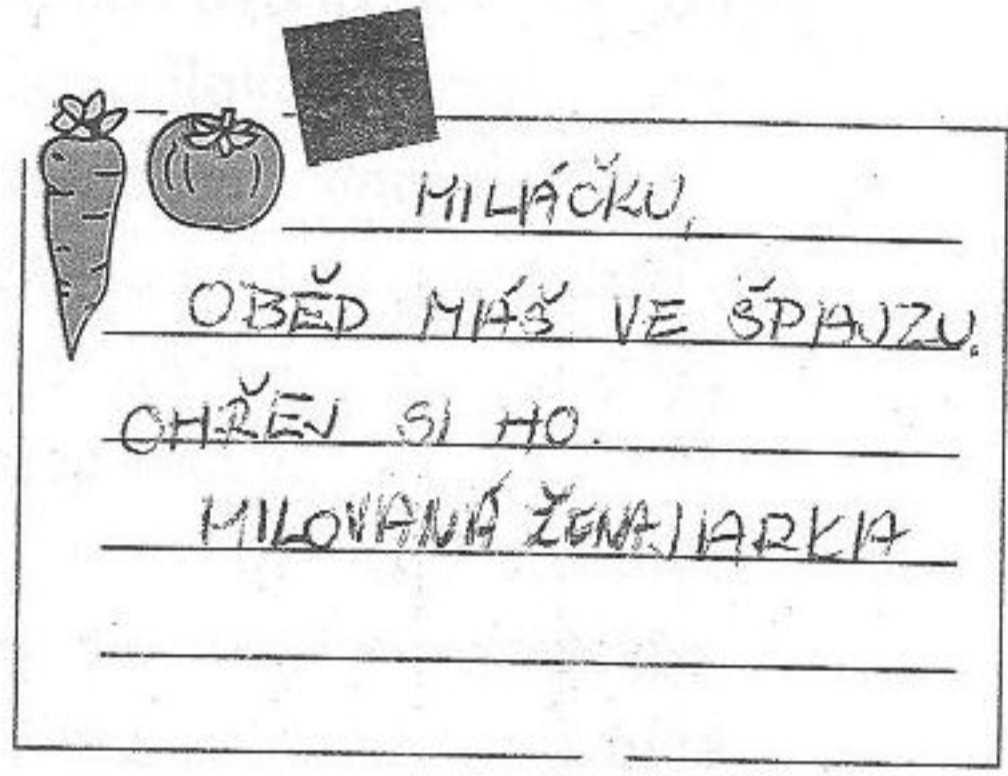 MILÁČKU,
OBĚD MÁŠ VE ŠPAJZU.
OHŘEJ SI HO.
MILOVANÁ ŽENA JARKA